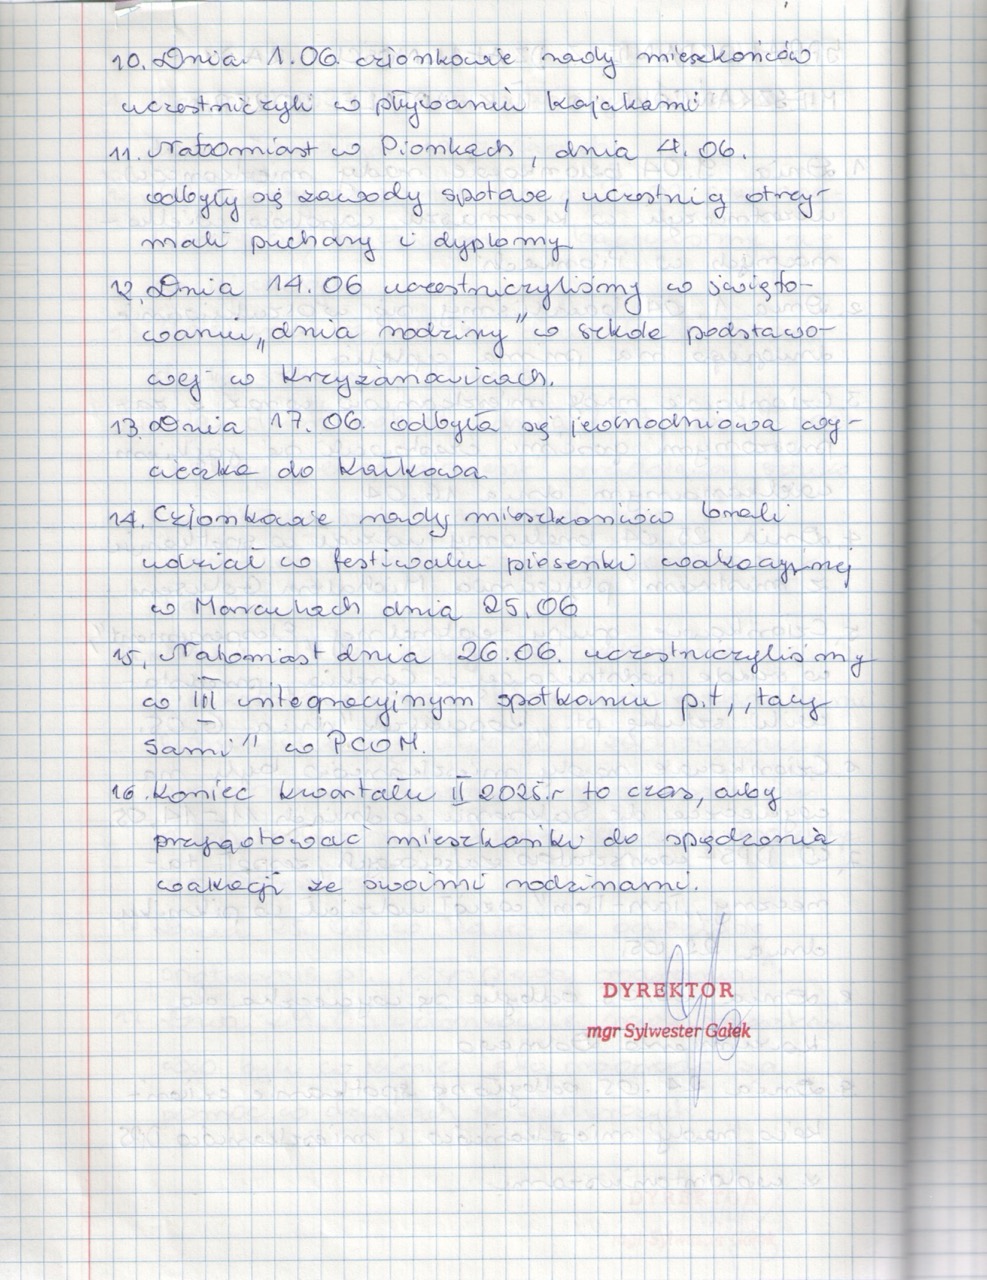 10. Dnia 1.06 członkowie rady mieszkańców
uczestniczyli w pływaniu kajakami
11. Natomiast w Pionkach, dnia 4.06.
odbyły się zawody spotowe, uczestnicy otrzy-
mali puchary i dyplomy
12. Dnia 14.06 uczestniczyliśmy w święto-
waniu „dnia rodziny" w szkole podstawo-
wej w Krzyżanowicach.
13. Dnia 17.06. odbyła się jednodniowa wy-
cieczka do Kałkowa
14. Członkowie rady mieszkańców brali
udział w festiwalu piosenki wakacyjnej
w dnia 25.06
15. Natomiast dnia 26.06. uczestniczyliśmy
w III integracyjnym spotkaniu p.t, „tacy
sami" w PCOM.
16. Koniec kwartału II 2025r to czas, aby
przygotować mieszkanki do spędzenia
wakacji ze swoimi rodzinami.
DYREKTOR
mgr Sylwester Gałek